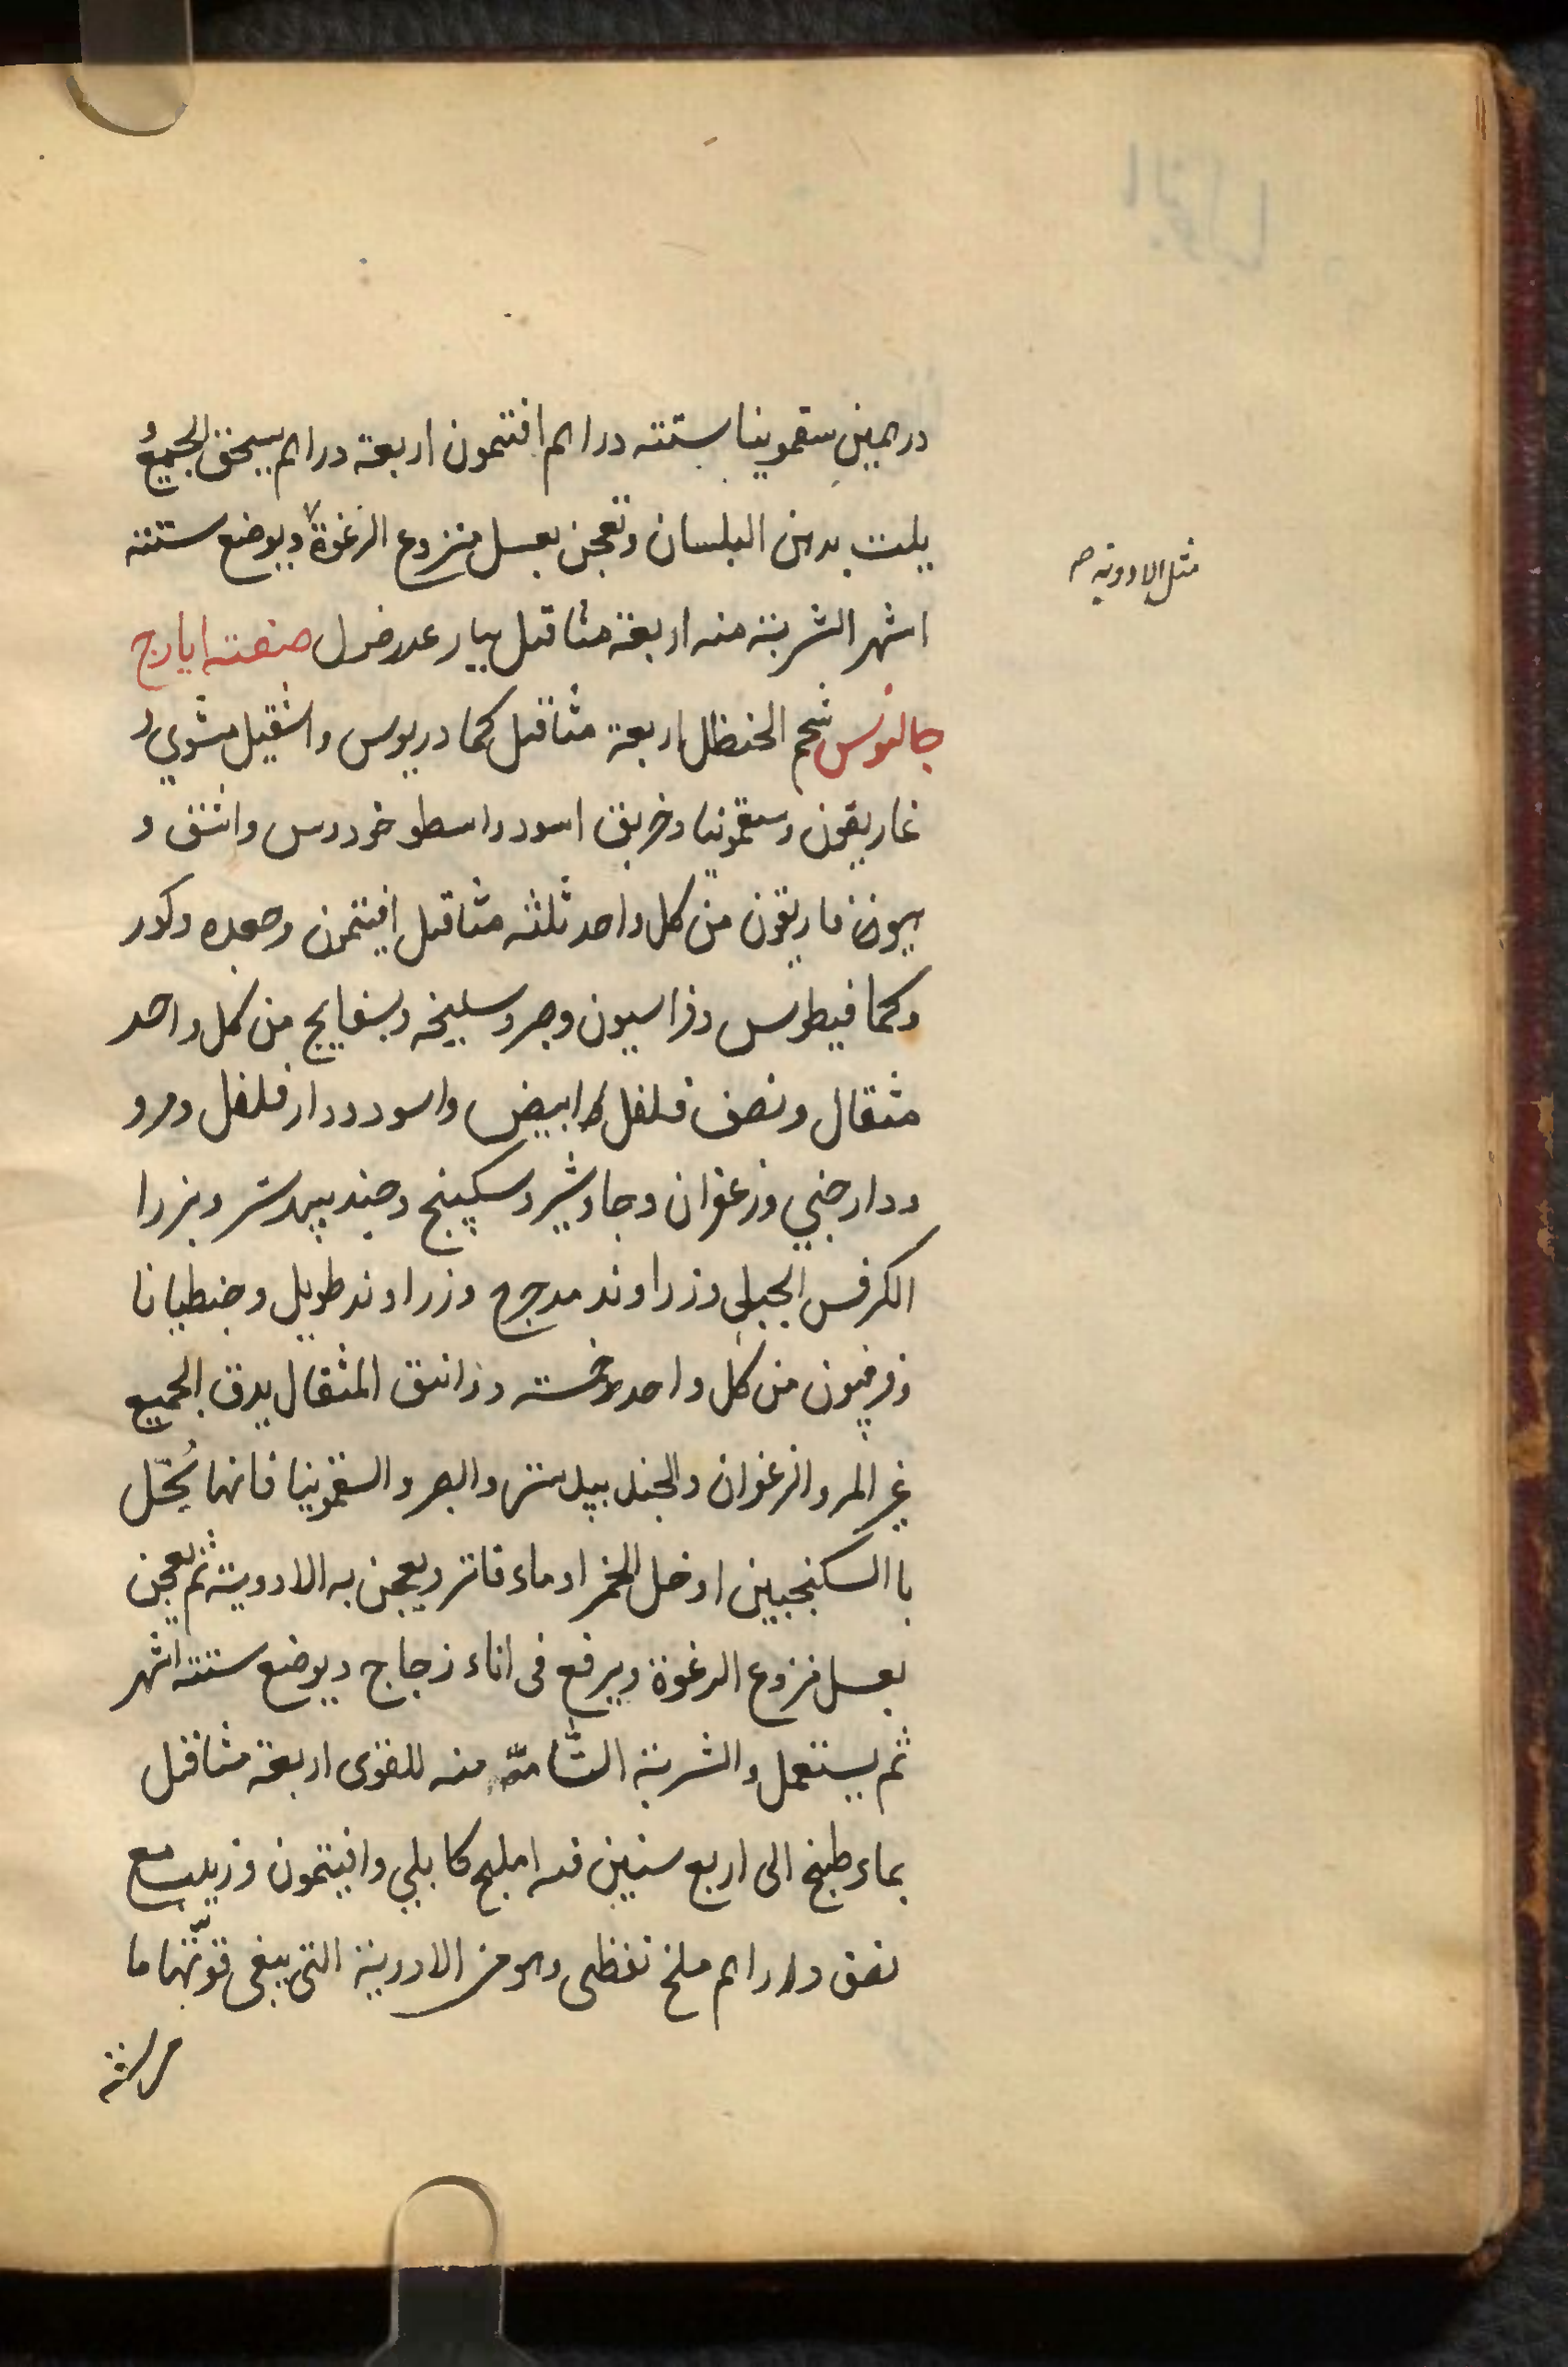 درهمين سقمونيا ستته دراهم افتيمون اربعة دراهم يسحق الجميعُ
يلت بدهن البلسان وتعجن بعسل منزوع الرغوة ويوضع ستته
مثل الادوية صح
اشهر الشربة منه اربعة مثاقيل صنعته ايارج
جالنوس شحم الحنظل اربعة مثاقيل كمادريوس واشقيل مشوي و
غاريقون وسقمونيا وخربق اسود واسطوخودوس واشق و
هيوفاريقون من كل واحد ثلثه مثاقيل افيتمون وجعده وكور
وكمافيطوس وفراسيون وصبر وسليخه وبسفايج من كل واحد
مثقال ونصف فلفل ابيض واسود ودارفلفل ومر و
ودارصيني وزعفران وجاوشير وسكبينج وجندبيدستر وبزرا
الكرفس الجبلي وزراوند مدحرج وزراوند طويل وجنطيانا
وفرفيون من كل واحد خمسته ودوانق المثقال يدق الجميع
غير المر والزعفران والجندبيدستر والصبر والسقمونيا فانها تُحلّ
باالسكنجبين او خل الخمر او ماء فاتر ويعجن به الادوية ثم يعجن
بعسل منزوع الرغوة ويرفع فى اناء زجاج ويوضع ستته اشهر
ثم يستعمل والشربة التّامّة منه للقوى اربعة مثاقيل
بماء طبخ الى اربع سنين فيه اهليلج كابلي وافيتمون وزبيب مع
نصف دراهم ملح نفطى وهو من الادوية التى يبقى قوّتها ما